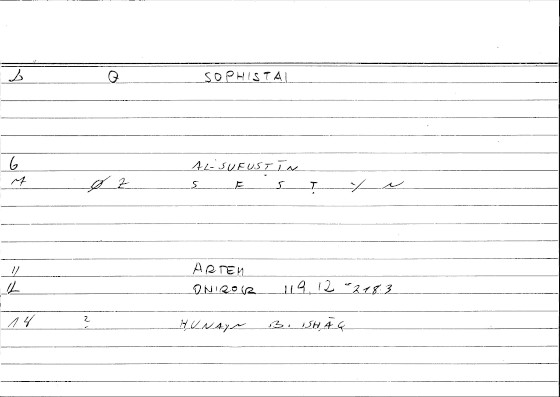 6 Q SOPHISTAI
6 AL-SUFUSṬĪN
Ø 2 S F S Ṭ Y N
11 ARTEM
12 ONIROCR 119.12 -218 3
14 ? ḤUNAYN B. ISḤĀQ